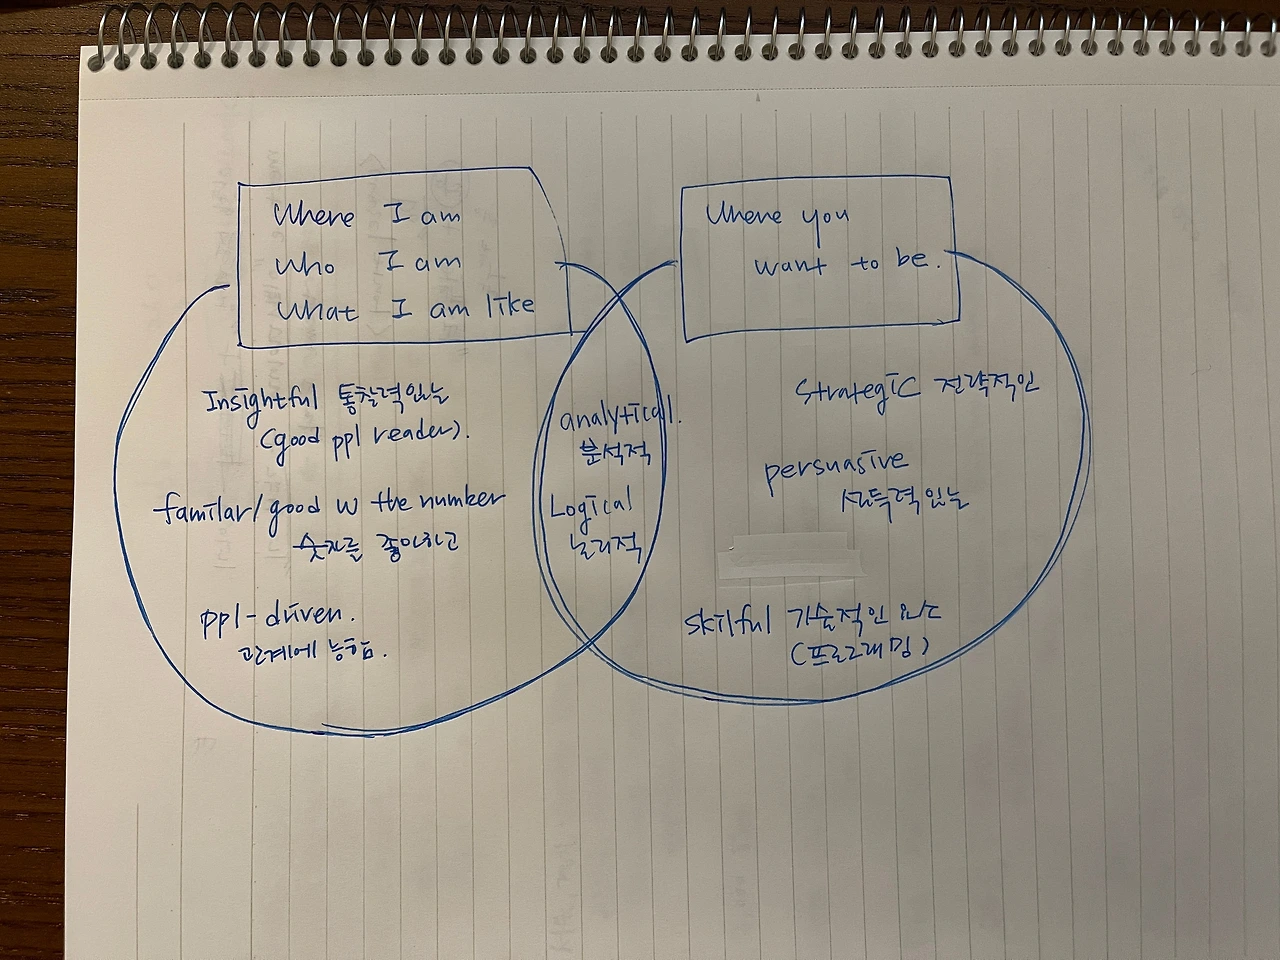 Where I am
Who I am
What I am like
Where you
want to be.
Insightful 통찰력있는
(good ppl reader).
familar/good w the number
숫자를 좋아하고
ppl-driven.
관계에 능함.
analytical.
분석적
Logical
논리적
strategic 전략적인
persuasive
설득력있는
skilful 기술적인
(프로그래밍)